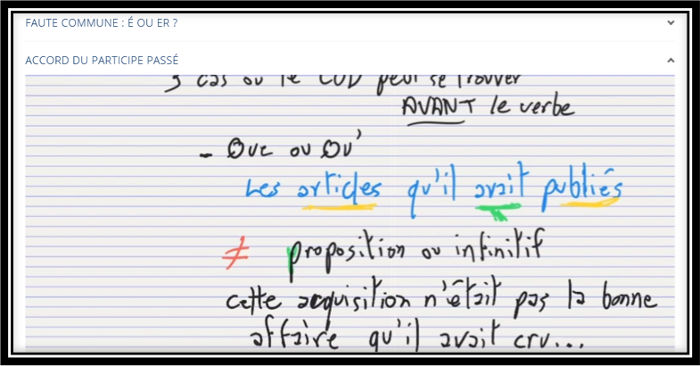 FAUTE COMMUNE : É OU ER ?
ACCORD DU PARTICIPE PASSÉ
3 cas où le COD peut se trouver
AVANT le verbe
- Que ou Qu'
Les articles qu'il avait publiés
≠ proposition ou infinitif
cette acquisition n'était pas la bonne
affaire qu'il avait cru...